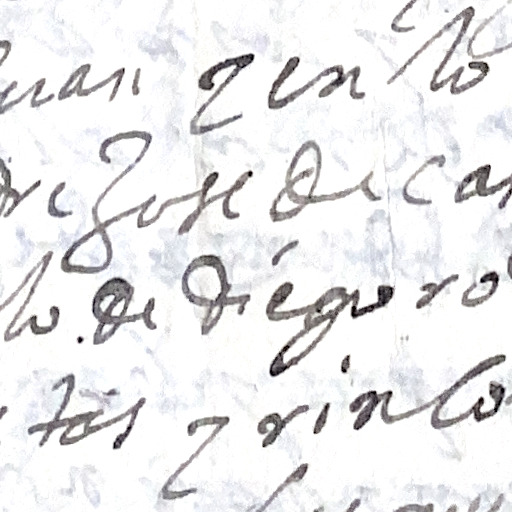 juan y en lo
dre Jose de cas
lo. de diego ro
tas y rinlo